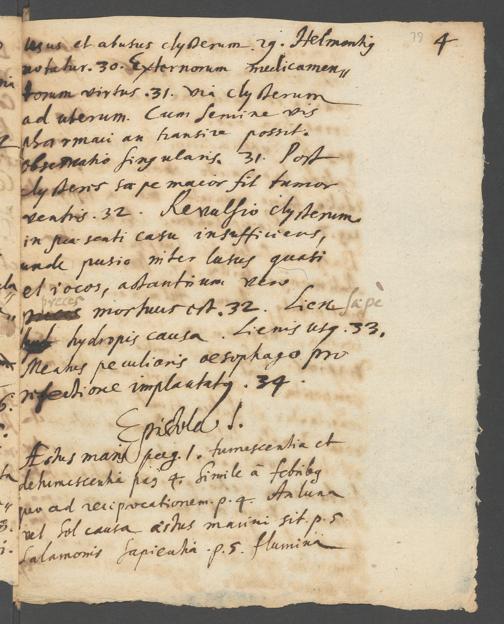 79 4
usus et abusus clysterum. 29. Helmontiq
notatur. 30. Externorum medicamen„
torum virtus. 31. via clysterum
ad uterum. Cum semine vis
pharmaci an transire possit.
observatio singularis. 31. Post
clysteris sæpe maior fit tumor
ventris. 32. Revulsio clysterum
in præsenti casu insufficiens,
unde pusio inter lusus quasi
et iocos, adstantium vero
preces mortuus est. 32. Lien sæpè
hydropis causa. Lienis usq. 33.
Meatus peculiaris œsophago pro
implantatq. 34.
Epistola I.
Æstus maris pag. 1. tumescentia et
detumescentia pag 4. Simile à febribq
quo ad reciprocationem. p. 4. An luna
vel Sol causa æstus marini sit. p. 5
Salamonis Sapientia. p. 5. flumina